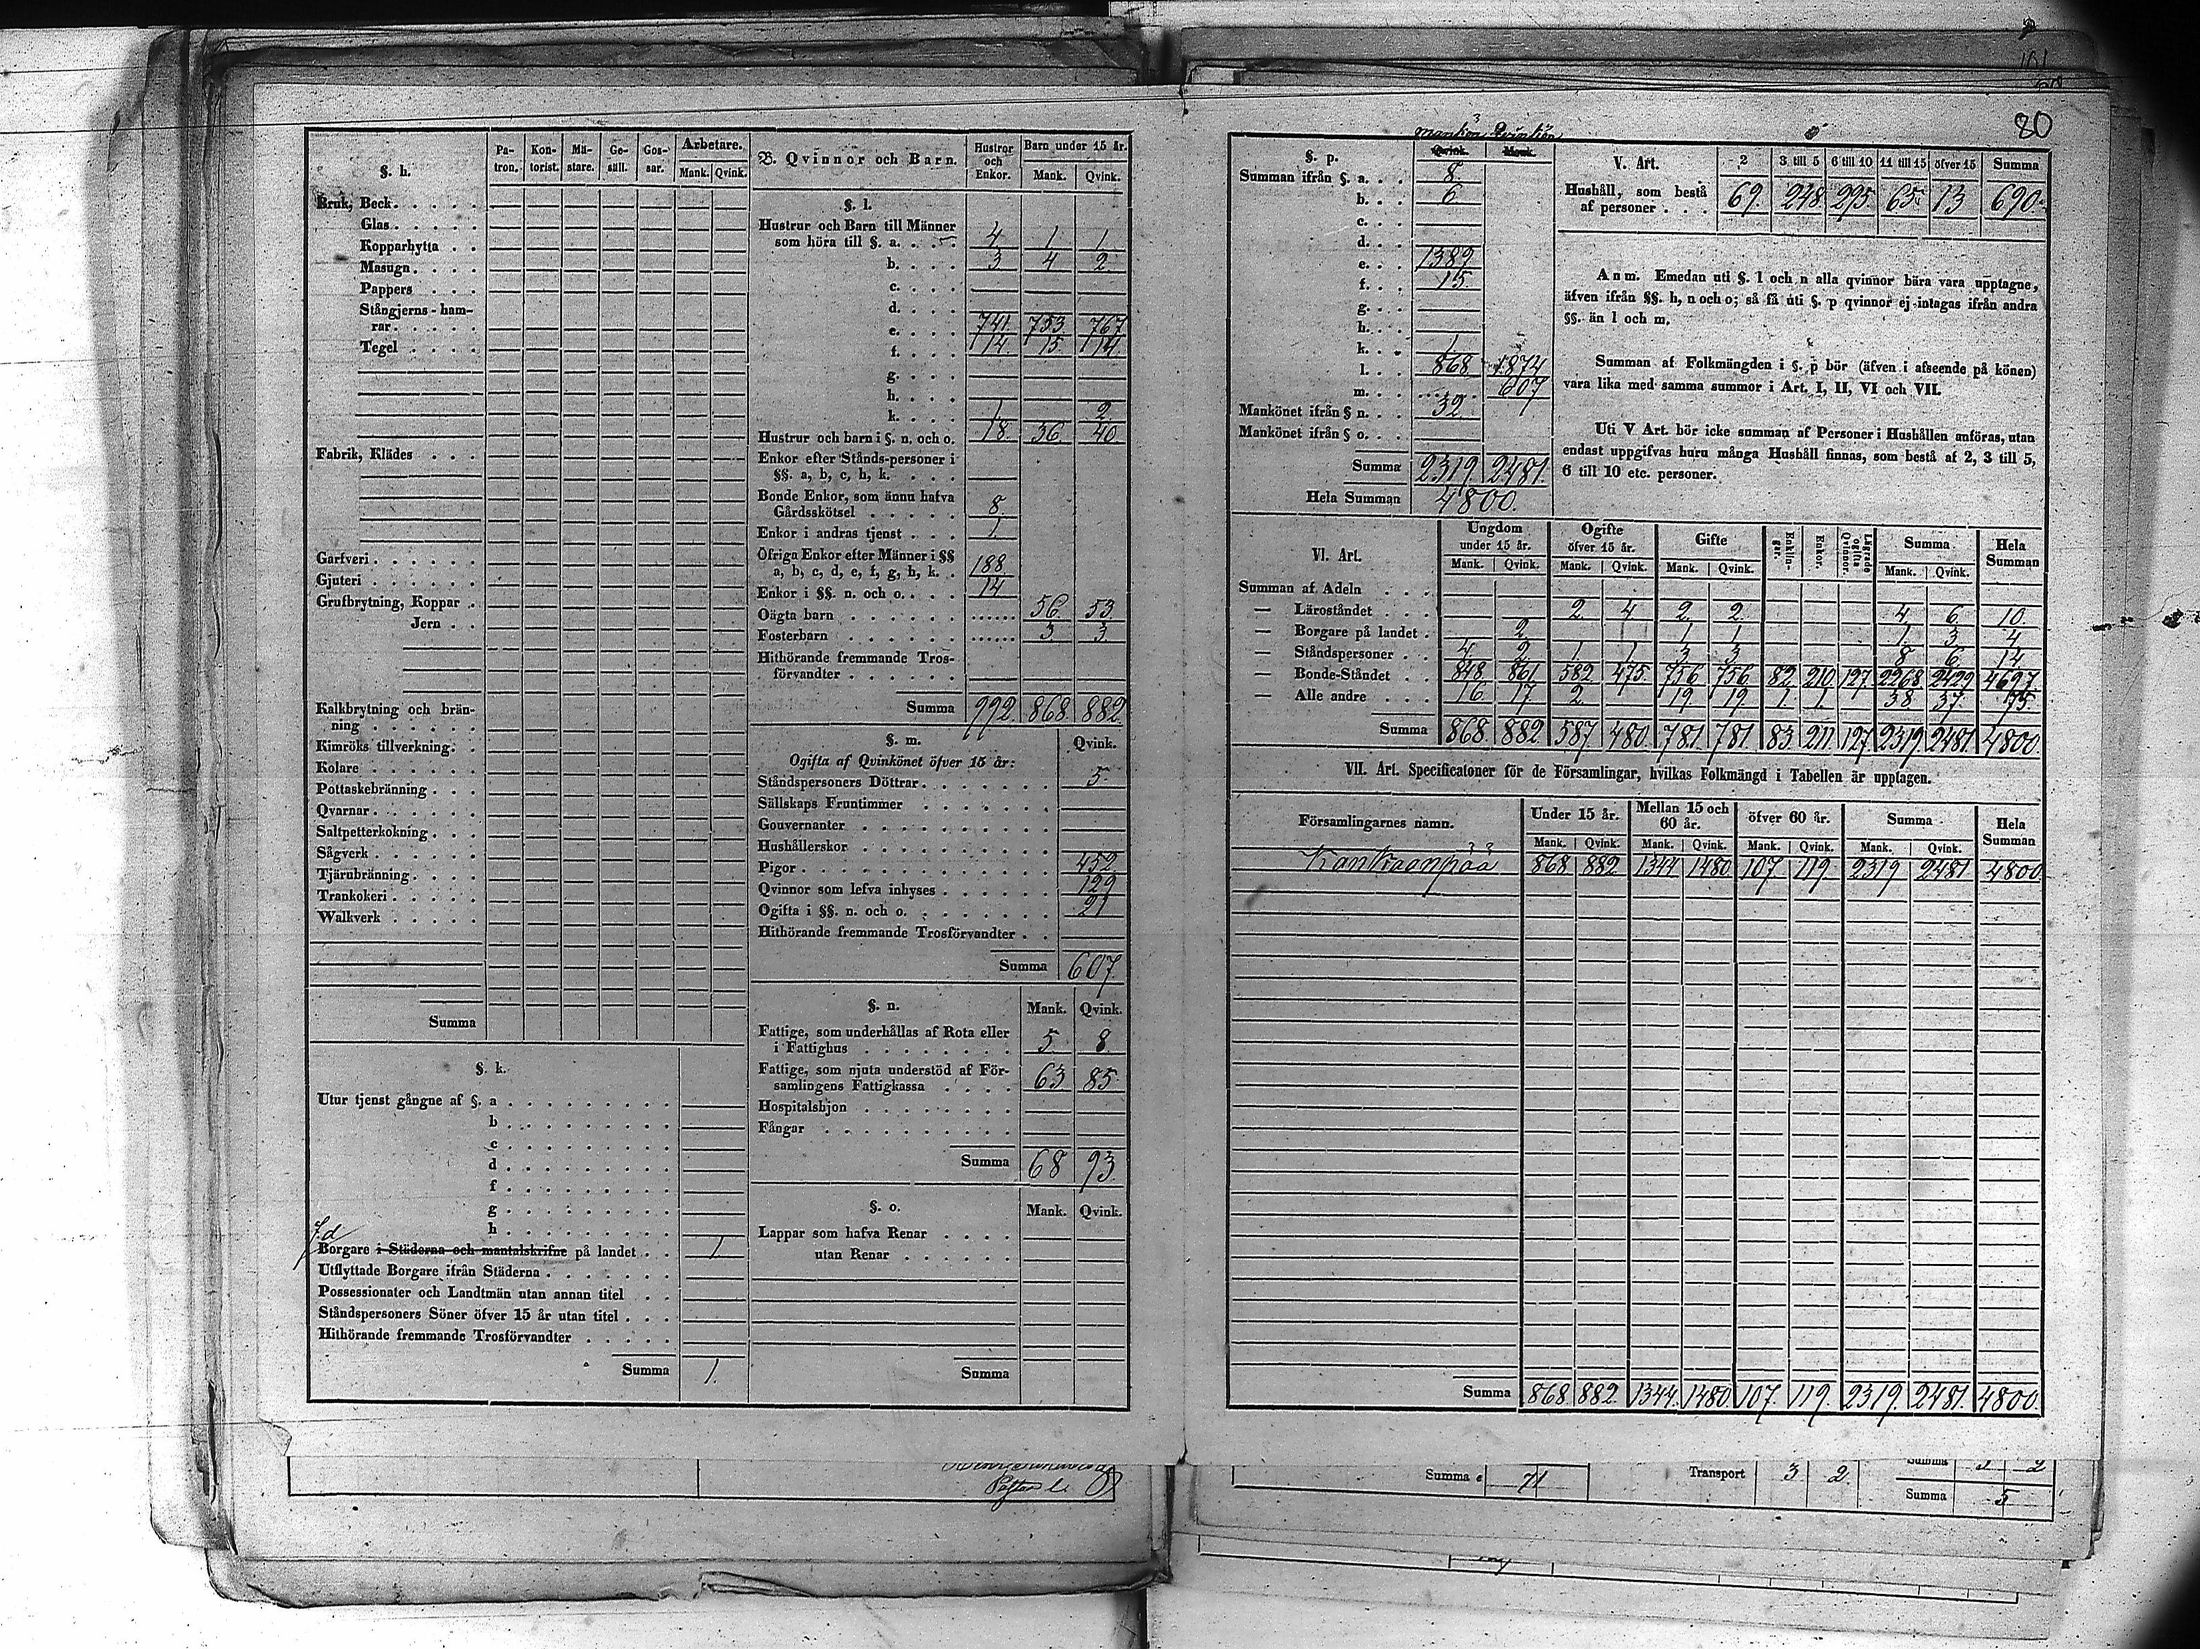 80
§. h.
Pa-tron. Kon-torist. Mä-stare. Ge-säll. Gos-sar. Arbetare. Mank. Qvink.
Bruk, Beck
Glas
Kopparhytta
Masugn
Pappers
Stångjerns-ham-
rar
Tegel
Fabrik, Klädes
Garfveri
Gjuteri
Grufbrytning, Koppar
Jern
Kalkbrytning och brän-
ning
Kimröks tillverkning
Kolare
Pottaskebränning
Qvarnar
Saltpetterkokning
Sågverk
Tjärubränning
Trankokeri
Walkverk
Summa
§. k.
Utur tjenst gångne af §. a
b
c
d
f
g
h
Borgare i Städerna och mantalskrifne på landet 1
Utflyttade Borgare ifrån Städerna
Possessionater och Landtmän utan annan titel
Ståndspersoners Söner öfver 15 år utan titel
Hithörande fremmande Trosförvandter
Summa 1.
B. Qvinnor och Barn. Hustror och Enkor. Barn under 15 år. Mank. Qvink.
§. l.
Hustrur och Barn till Männer
som höra till §. a. 4 1 1
b. 3 4 2
c.
d.
e. 741 753 767
f. 14 15 14
g.
h.
k. 1 2
Hustrur och barn i §. n. och o. 18 36 40
Enkor efter Stånds-personer i
§§. a, b, c, h, k.
Bonde Enkor, som ännu hafva
Gårdsskötsel 8
Enkor i andras tjenst 1
Öfriga Enkor efter Männer i §§
a, b, c, d, e, f, g, h, k. 188
Enkor i §§. n. och o. 14
Oägta barn 56 53
Fosterbarn 3 3
Hithörande fremmande Tros-
förvandter
Summa 992 868 882
§. m. Qvink.
Ogifta af Qvinkönet öfver 15 år:
Ståndspersoners Döttrar 5
Sällskaps Fruntimmer
Gouvernanter
Hushållerskor
Pigor 452
Qvinnor som lefva inhyses 129
Ogifta i §§. n. och o. 21
Hithörande fremmande Trosförvandter
Summa 607
§. n. Mank. Qvink.
Fattige, som underhållas af Rota eller
i Fattighus 5 8
Fattige, som njuta understöd af För-
samlingens Fattigkassa 63 85
Hospitalshjon
Fångar
Summa 68 93
§. o. Mank. Qvink.
Lappar som hafva Renar
utan Renar
Summa
Mankön Qvinkön
§. p. Qvink. Mank.
Summan ifrån §. a. 8
b. 6
c.
d.
e. 1389
f. 15
g.
h.
k. 1
l. 868 1874
m. 607
Mankönet ifrån § n. 32
Mankönet ifrån § o.
Summa 2319 2481
Hela Summan 4800
V. Art. 2 3 till 5 6 till 10 11 till 15 öfver 15 Summa
Hushåll, som bestå
af personer 69 248 295 65 13 690
Anm. Emedan uti §. l och n alla qvinnor böra vara upptagne,
äfven ifrån §§. h, n och o; så få uti §. p qvinnor ej intagas ifrån andra
§§. än l och m.
Summan af Folkmängden i §. p bör (äfven i afseende på könen)
vara lika med samma summor i Art. I, II, VI och VII.
Uti V Art. bör icke summan af Personer i Hushållen anföras, utan
endast uppgifvas huru många Hushåll finnas, som bestå af 2, 3 till 5,
6 till 10 etc. personer.
VI. Art. Ungdom under 15 år. Ogifte öfver 15 år. Gifte Enklin-gar. Enkor. Lägrade ogifta Qvinnor. Summa Hela Summan
Mank. Qvink. Mank. Qvink. Mank. Qvink. Mank. Qvink.
Summan af Adeln
— Läroståndet 2 4 2 2 4 6 10
— Borgare på landet 2 1 1 1 3 4
— Ståndspersoner 4 2 1 1 3 3 8 6 14
— Bonde-Ståndet 848 861 582 475 756 756 82 210 127 2268 2429 4697
— Alle andre 16 17 2 19 19 1 1 38 37 75
Summa 868 882 587 480 781 781 83 211 127 2319 2481 4800
VII. Art. Specificatoner för de Församlingar, hvilkas Folkmängd i Tabellen är upptagen.
Församlingarnes namn. Under 15 år. Mellan 15 och 60 år. öfver 60 år. Summa Hela Summan
Mank. Qvink. Mank. Qvink. Mank. Qvink. Mank. Qvink.
Kankaanpää 868 882 1344 1480 107 119 2319 2481 4800
Summa 868 882 1344 1480 107 119 2319 2481 4800
Summa e 71 Transport 3 2 Summa 3 2
Summa 5